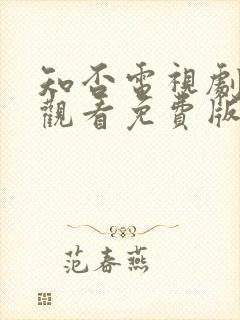 知否電視劇
觀看免費版
范春燕